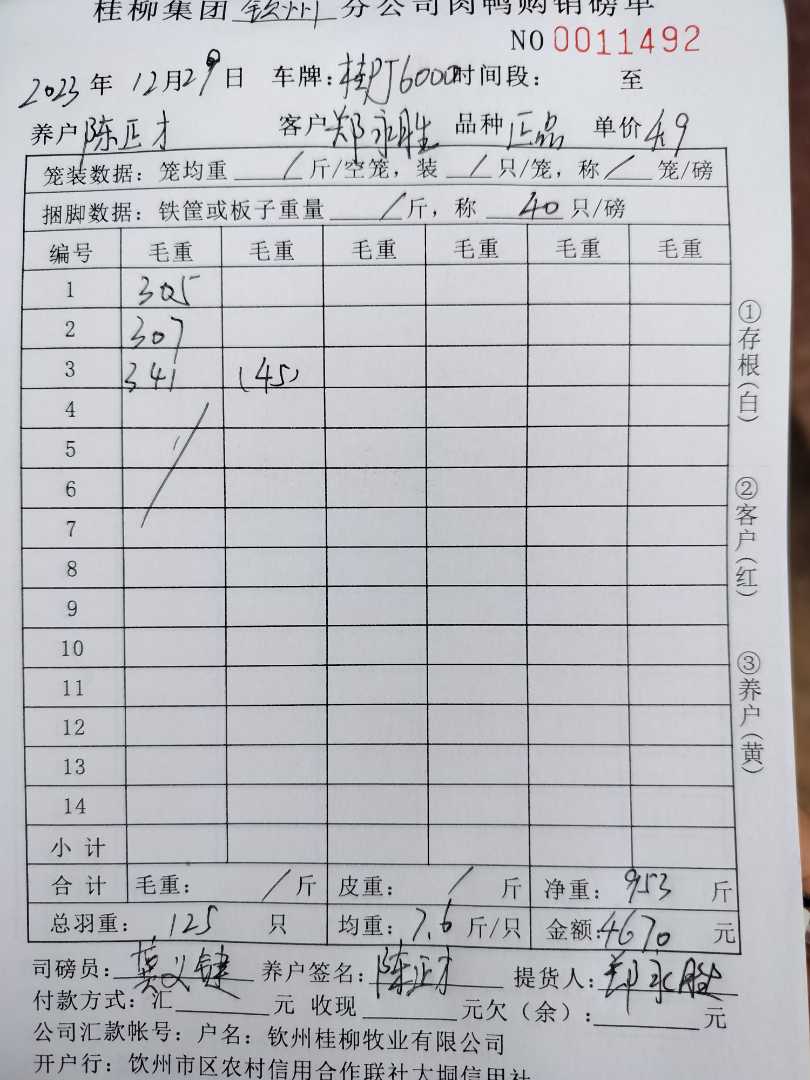 桂柳集团 钦州 分公司肉鸭购销磅单
NO 0011492
2023 年 12月29日 车牌: 桂PJ6000 时间段: 至
养户 陈正才 客户 郑永胜 品种 正品 单价 4.9
笼装数据: 笼均重 / 斤/空笼, 装 / 只/笼, 称 / 笼/磅
捆脚数据: 铁筐或板子重量 / 斤, 称 40 只/磅
编号 毛重 毛重 毛重 毛重 毛重 毛重
1 305
2 307
3 341 (45)
4
5
6
7
8
9
10
11
12
13
14
小计
合计 毛重: / 斤 皮重: / 斤 净重: 953 斤
总羽重: 125 只 均重: 7.6 斤/只 金额: 4670 元
司磅员: 莫义键 养户签名: 陈正才 提货人: 郑永胜
付款方式: 汇 元 收现 元欠(余): 元
公司汇款帐号: 户名: 钦州桂柳牧业有限公司
开户行: 钦州市区农村信用合作联社大垌信用社
①存根(白)
②客户(红)
③养户(黄)